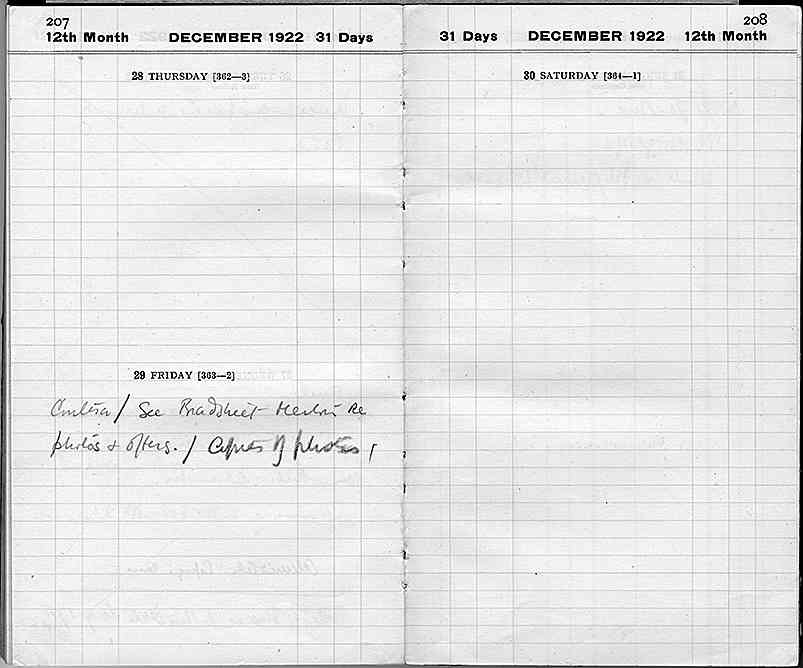 207
12th Month DECEMBER 1922 31 Days
28 THURSDAY [362—3]
29 FRIDAY [363—2]
/ See Bradstreet Re
photos & offers. / Copies of photos
208
31 Days DECEMBER 1922 12th Month
30 SATURDAY [364—1]